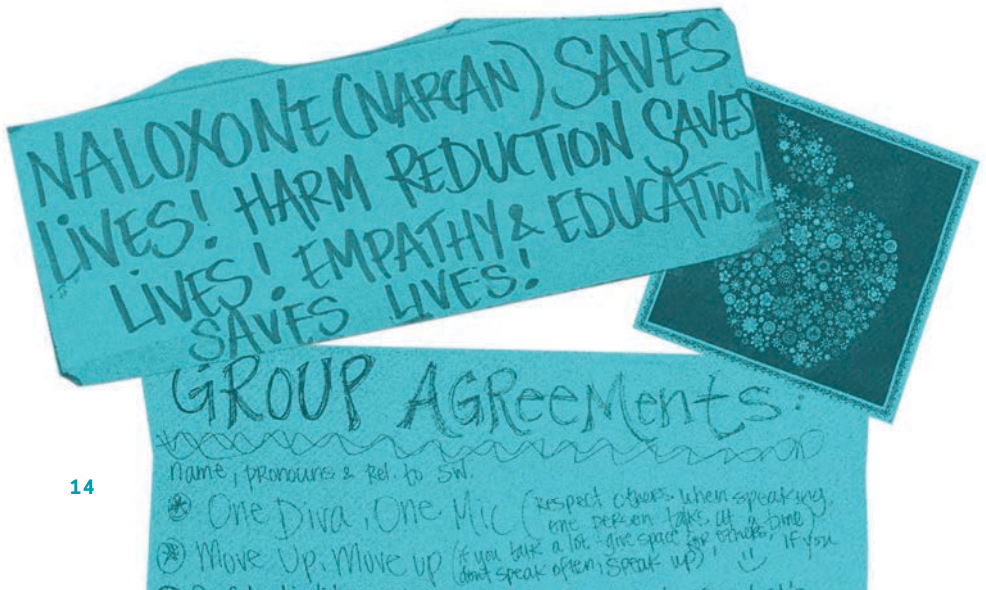 NALOXONE (NARCAN) SAVES
LIVES! HARM REDUCTION SAVES
LIVES! EMPATHY & EDUCATION
SAVES LIVES!
GROUP AGReeMents:
name, pronouns & Rel. to SW.
One Diva, One Mic (respect others when speaking,
one person talks at a time)
Move Up, Move up (if you talk a lot - give space for others, if you
don't speak often, speak up)
14